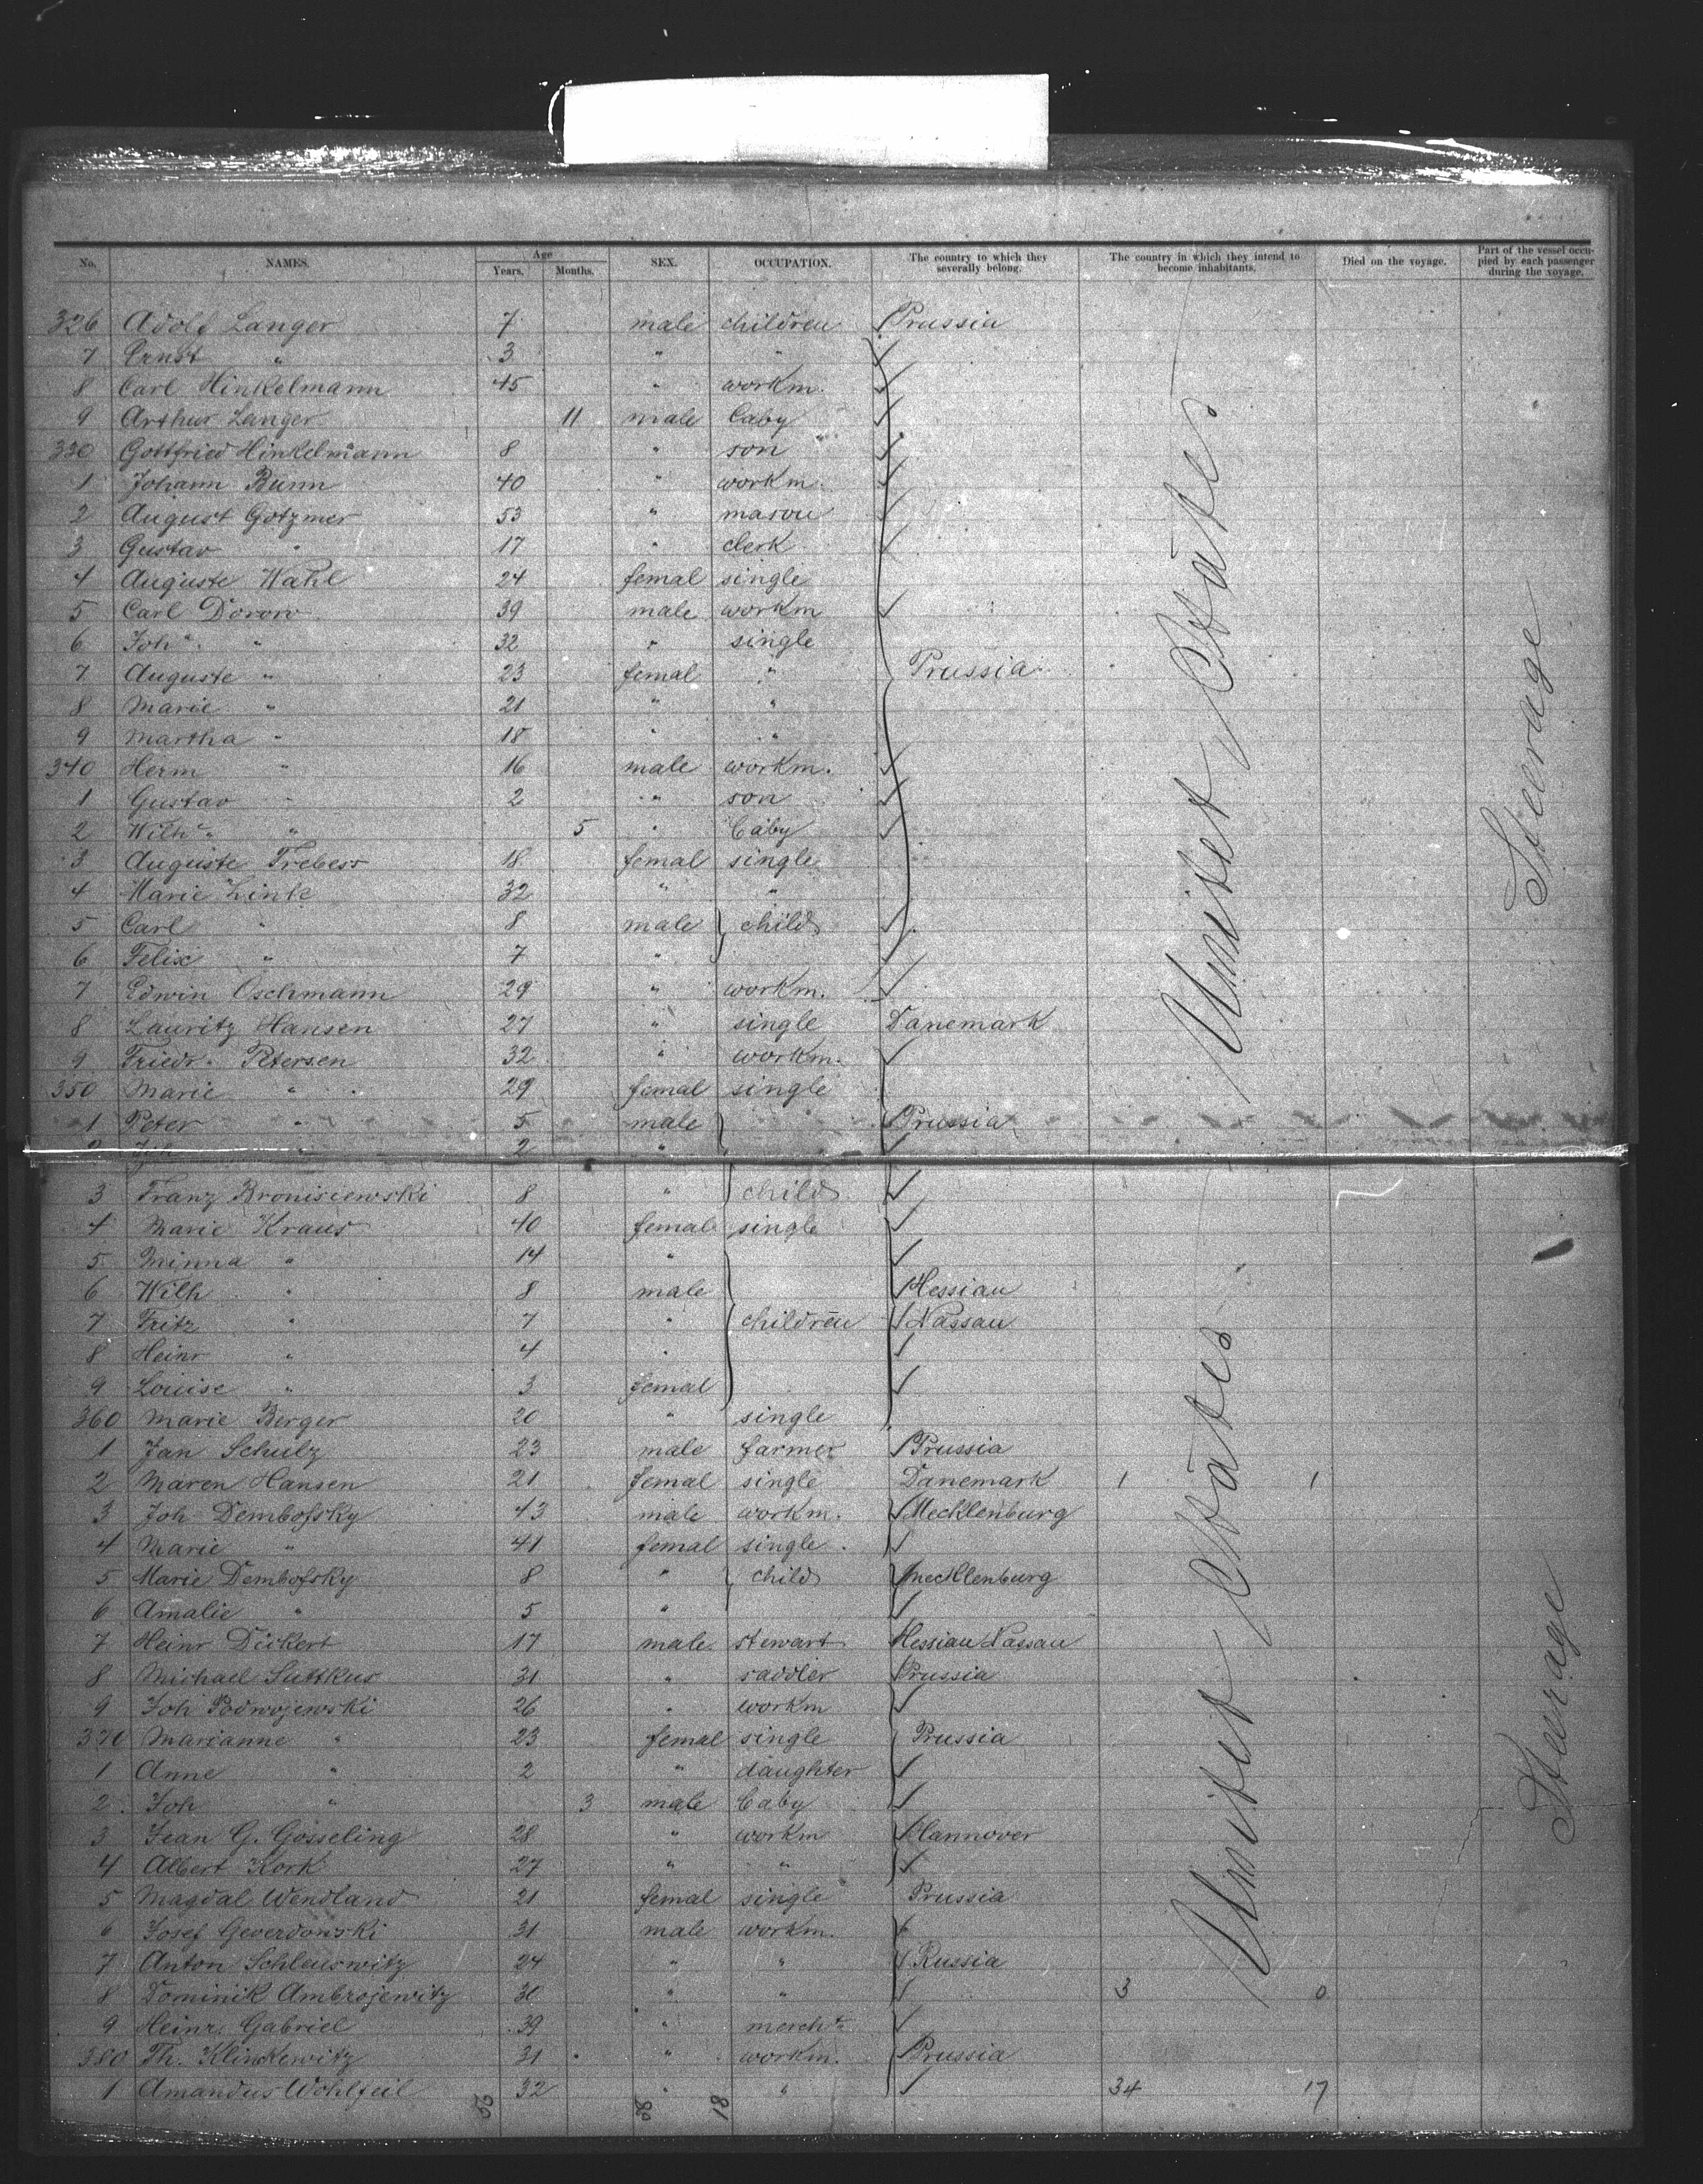 No. NAMES. Age Years. Months. SEX. OCCUPATION. The country to which they severally belong. The country in which they intend to become inhabitants. Died on the voyage. Part of the vessel occupied by each passenger during the voyage.
326 Adolf Langer 7 male children Prussia
7 Ernst " 3 " "
8 Carl Hinkelmann 45 " workm.
9 Arthur Langer 11 male baby
330 Gottfried Hinkelmann 8 " son
1 Johann Bunn 40 " workm.
2 August Götzmer 53 " mason
3 Gustav " 17 " clerk
4 Auguste Wahl 24 femal single
5 Carl Dorow 39 male workm
6 Joha. " 32 " single
7 Auguste " 23 femal " Prussia
8 Marie " 21 " "
9 Martha " 18 " "
340 Herm " 16 male workm.
1 Gustav " 2 " son
2 Wilh. " 5 " baby
3 Auguste Trebess 18 femal single
4 Marie 32 " "
5 Carl " 8 male child
6 Felix " 7 "
7 Edwin Oschmann 29 " workm.
8 Lauritz Hansen 27 " single Danemark
9 Friedr. Petersen 32 " workm.
350 Marie " 29 femal single
1 Peter " 5 male Prussia
2 " 2 "
3 Franz Bronisiewski 8 " child
4 Marie Kraus 40 femal single
5 Minna " 14 "
6 Wilh " 8 male Hessian
7 Fritz " 7 " children Nassau
8 Heinr " 4 "
9 Louise " 3 femal
360 Marie Berger 20 " single
1 Jan Schulz 23 male farmer Prussia
2 Maren Hansen 21 femal single Danemark 1 1
3 Joh Dembofsky 43 male workm. Mecklenburg
4 Marie " 41 femal single
5 Marie Dembofsky 8 " child Mecklenburg
6 Amalie " 5 "
7 Heinr Dickert 17 male stewart Hessian Nassau
8 Michael Suttkus 31 " saddler Prussia
9 Joh Podwojewski 26 " workm
370 Marianne " 23 femal single Prussia
1 Anne " 2 " daughter
2 Joh " 3 male baby
3 Jean G. Gösseling 28 " workm Hannover
4 Albert Kork 27 " "
5 Magdal Wendland 21 femal single Prussia
6 Josef Geverdowski 31 male workm.
7 Anton Schleuswitz 24 " " Russia
8 Dominik Ambrojewitz 30 " " 3 0
9 Heinr. Gabriel 39 " mercht.
380 Th. Klinkewitz 31 " workm. Prussia
1 Amandus Wohlfeil 32 " " 34 17
18
Unitet States
Steerage
Unitet States
Steerage